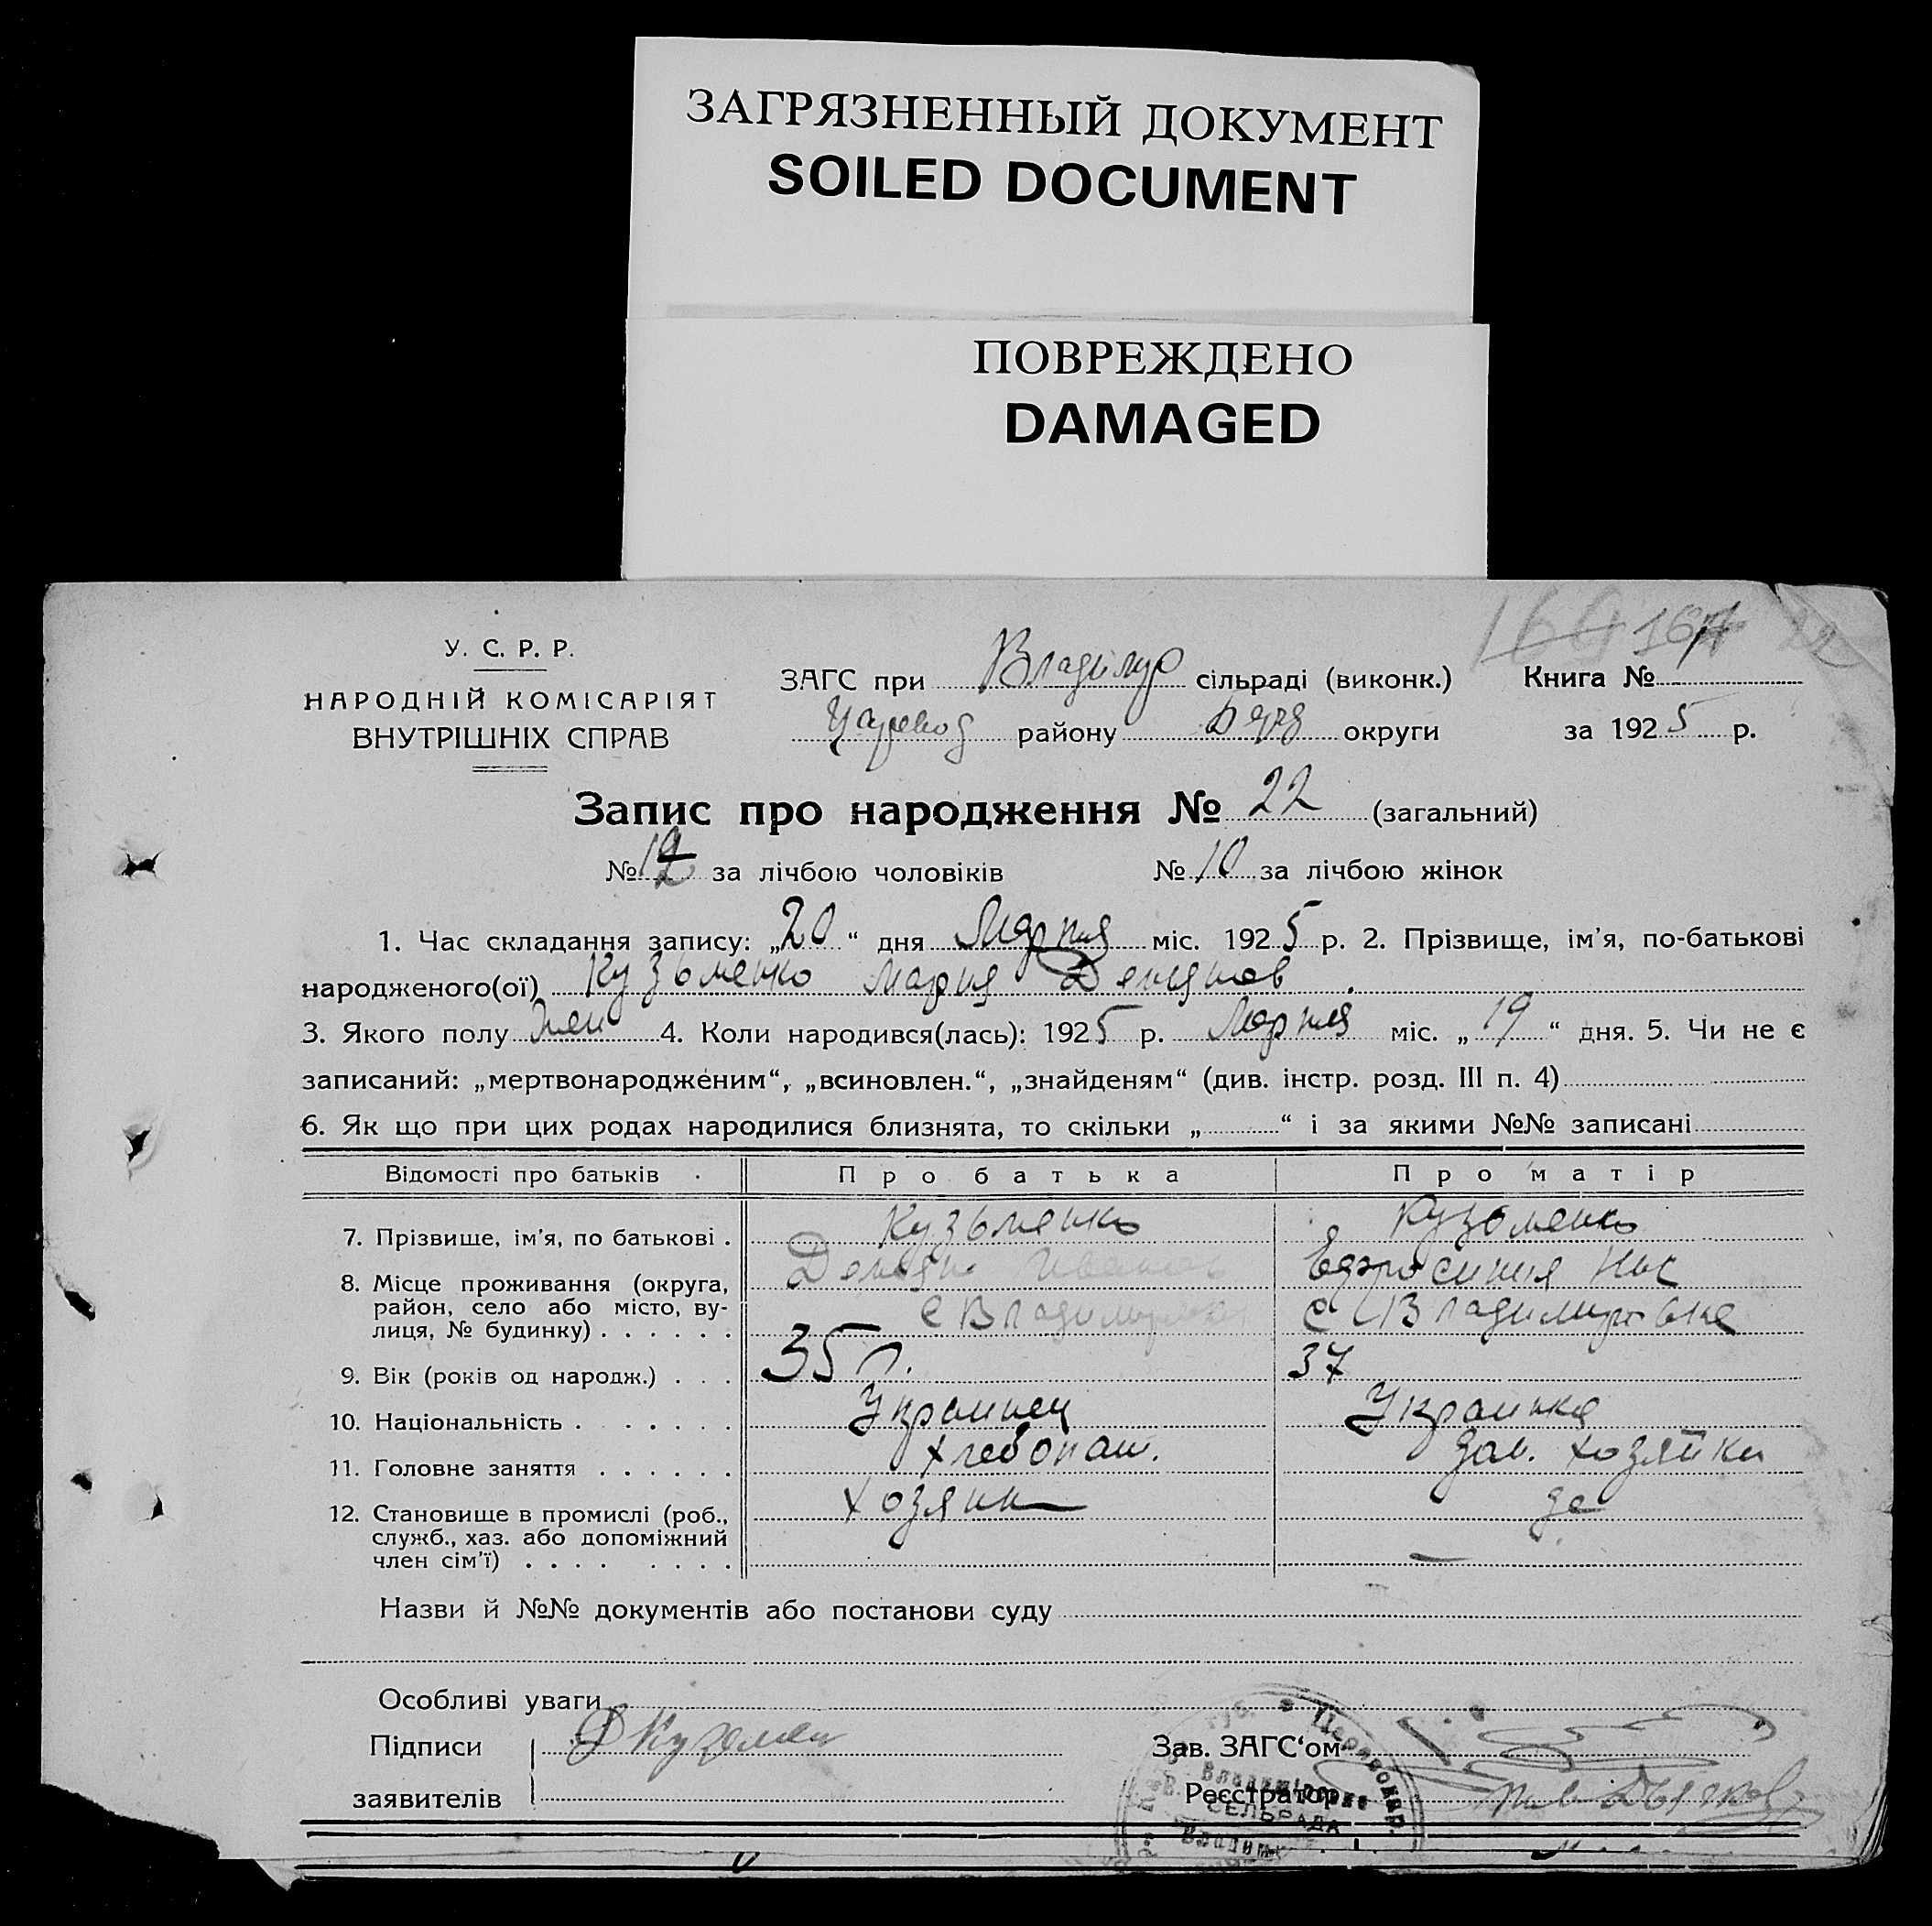 ЗАГРЯЗНЕННЫЙ ДОКУМЕНТ
SOILED DOCUMENT
ПОВРЕЖДЕНО
DAMAGED
У. С. Р. Р.
НАРОДНІЙ КОМІСАРІЯТ
ВНУТРІШНІХ СПРАВ
ЗАГС при Владимир сільраді (виконк.) Книга №
району округи за 1925 р.
Запис про народження № 22 (загальний)
№ за лічбою чоловіків № 10 за лічбою жінок
1. Час складання запису: „20“ дня Марта міс. 1925 р. 2. Прізвище, ім'я, по-батькові
народженого(ої) Кузьменко Мария Демянов
3. Якого полу Жен 4. Коли народився(лась): 1925 р. Марта міс. „19“ дня. 5. Чи не є
записаний: „мертвонародженим“, „всиновлен.“, „знайденям“ (див. інстр. розд. III п. 4)
6. Як що при цих родах народилися близнята, то скільки „ “ і за якими №№ записані
Відомості про батьків Про батька Про матір
7. Прізвище, ім'я, по батькові . Кузьменко Кузьменко
Демян Иванов Ефросиния
8. Місце проживання (округа,
район, село або місто, ву-
лиця, № будинку) . . . . . . с Владимировка с Владимировка
9. Вік (років од народж.) . . . 35 л. 37
10. Національність . . . . . . Украинец Украинка
11. Головне заняття . . . . . . хлебопаш. зам. хозяйки
12. Становище в промислі (роб.,
служб., хаз. або допоміжний
член сім'ї) . . . . . . . . хозяин
Назви й №№ документів або постанови суду
Особливі уваги
Підписи Д Кузмен Зав. ЗАГС'ом
заявителів Реєстратор
СЕЛЬРАДА